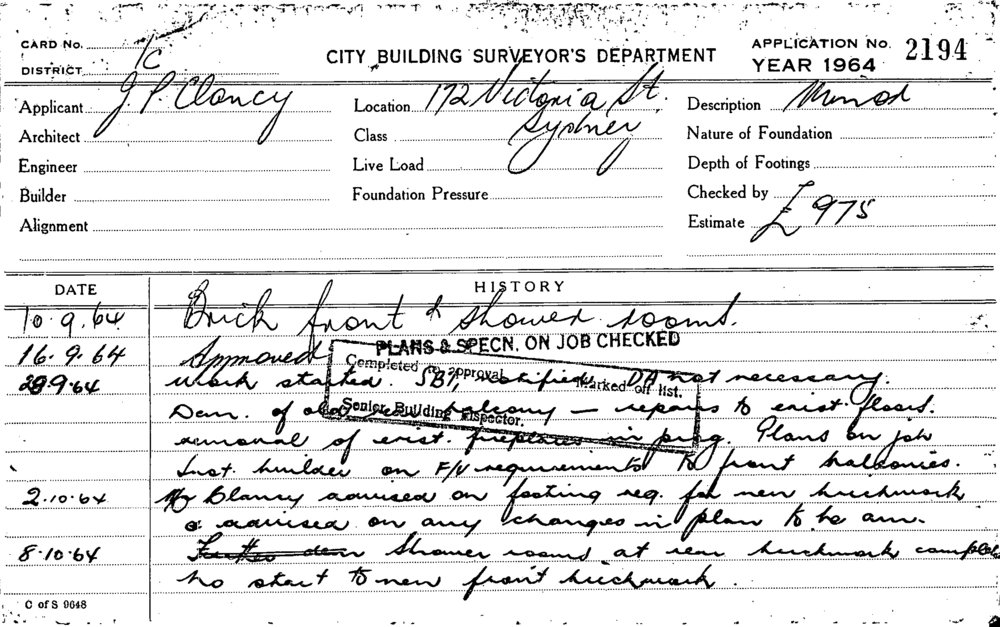 CARD No.
DISTRICT 1C
CITY BUILDING SURVEYOR'S DEPARTMENT
APPLICATION No. 2194
YEAR 1964
Applicant J. P. Clancy
Location 172 Victoria St.
Sydney
Description
Architect
Class
Nature of Foundation
Engineer
Live Load
Depth of Footings
Builder
Foundation Pressure
Checked by
Alignment
Estimate £975
DATE
HISTORY
10.9.64 Brick front & shower rooms.
16.9.64 Approved
PLANS & SPECN. ON JOB CHECKED
Completed approval
Marked off list.
Senior Building Inspector.
work started. notified DA not necessary.
Dem. of old balcony — repairs to exist. floors.
removal of exist. fireplaces in prog. Plans on job
Inst. builder on F/U requirements to front balconies.
2.10.64 Mr Clancy advised on footing req. for new brickwork
& advised on any changes in plan to be am.
8.10.64 Shower rooms at rear brickwork complete
no start to new front brickwork.
C of S 9648